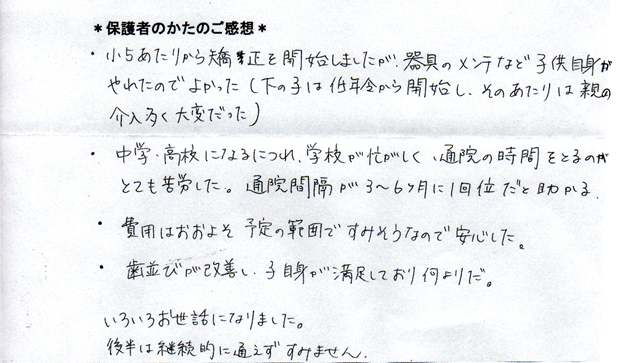 ＊保護者のかたのご感想＊
・小5あたりから矯正を開始しましたが、器具のメンテなど子供自身が
やれたのでよかった（下の子は低年令から開始し、そのあたりは親の
介入多く大変だった）
・中学・高校になるにつれ、学校が忙がしく、通院の時間をとるのが
とても苦労した。通院間隔が3〜6ヶ月に1回位だと助かる
・費用はおおよそ予定の範囲ですみそうなので安心した。
・歯並びが改善し、子自身が満足しており何よりだ。
いろいろお世話になりました。
後半は継続的に通えずすみません。